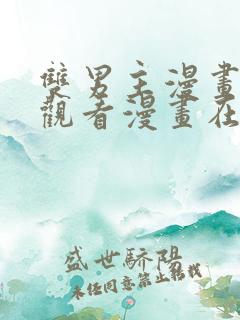 雙男主漫畫
觀看漫畫在
盛世驕陽
未經同意禁止轉載